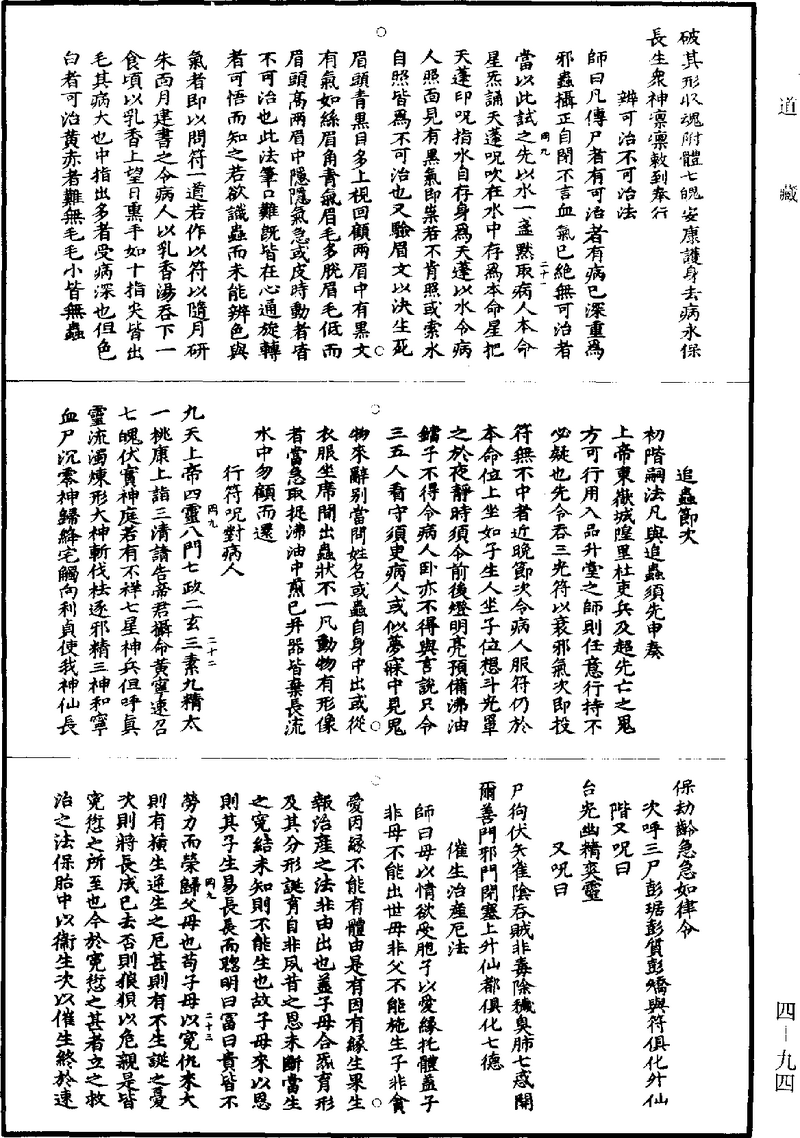 道藏
四—九四
破其形收魂附體七魄安康護身去病永保
長生衆神稟稟敕到奉行
辨可治不可治法
師曰凡傳尸者有可治者有病已深重為
邪蟲攝正自閉不言血氣已絶無可治者
當以此試之先以水一盞黙取病人本命
岡九
二十一
星炁誦天蓬呪吹在水中存為本命星把
天蓬印呪指水自存身為天蓬以水令病
人照面見有黑氣即祟若不肯照或索水
自照皆為不可治也又驗眉文以決生死
眉頭青黑目多上視回顧兩眉中有黑文
有氣如絲眉角青氣眉毛多脫眉毛低而
眉頭高兩眉中隱隱氣急或皮時動者皆
不可治也此法筆口難旣皆在心通旋轉
者可悟而知之若欲識蟲而未能辨色與
氣者即以問符一道若作以符以隨月研
朱丙月建書之令病人以乳香湯吞下一
食頃以乳香上望日熏手如十指尖皆出
毛其病大也中指出多者受病深也但色
白者可治黃赤者難無毛毛小皆無蟲
追蟲節次
初階嗣法凡與追蟲須先申奏
上帝東嶽城隍里社吏兵及超先亡之鬼
方可行用入品升堂之師則任意行持不
必疑也先令吞三光符以衰邪氣次即投
符無不中者近晚節次令病人服符仍於
本命位上坐如子生人坐子位想斗光罩
之於夜靜時須令前後燈明亮預備沸油
鐺子不得令病人卧亦不得與言說只令
三五人看守須臾病人或似夢寐中見鬼
物來辭別當問姓名或蟲自身中出或從
衣服坐席間出蟲狀不一凡動物有形像
者當急取捉沸油中煎已并器皆棄長流
水中勿顧而還
行符呪對病人
岡九
二十二
九天上帝四靈八門七政二玄三素九精太
一桃康上詣三清請告帝君攝命黃寧速召
七魄伏實神庭若有不祥七星神兵但呼真
靈流濁煉形大神斬伐祛逐邪精三神和寧
血尸沉零神歸絳宅觸向利貞使我神仙長
保劫齡急急如律令
次呼三尸彭琚彭質彭矯與符俱化外仙
階又呪曰
台光幽精爽靈
又呪曰
尸狗伏矢雀陰吞賊非毒除穢臭肺七惑開
爾善門邪門閉塞上升仙都俱化七德
催生治產厄法
師曰母以情欲受胞子以愛緣托體蓋子
非母不能出世母非父不能施生子非貪
愛因緣不能有體由是有因有緣生果生
報治產之法非由出也蓋子母合炁育形
及其分形誕育自非夙昔之恩未斷當生
之冤結未知則不能生也故子母來以恩
則其子生易長長而聰明曰富曰貴皆不
岡九
二十三
勞力而榮歸父母也苟子母以冤仇來大
則有橫生逆生之厄甚則有不生誕之憂
次則將長成已去否則狼狽以危親是皆
冤愆之所至也今於冤愆之甚者立之救
治之法保胎中以衛生次以催生終於速